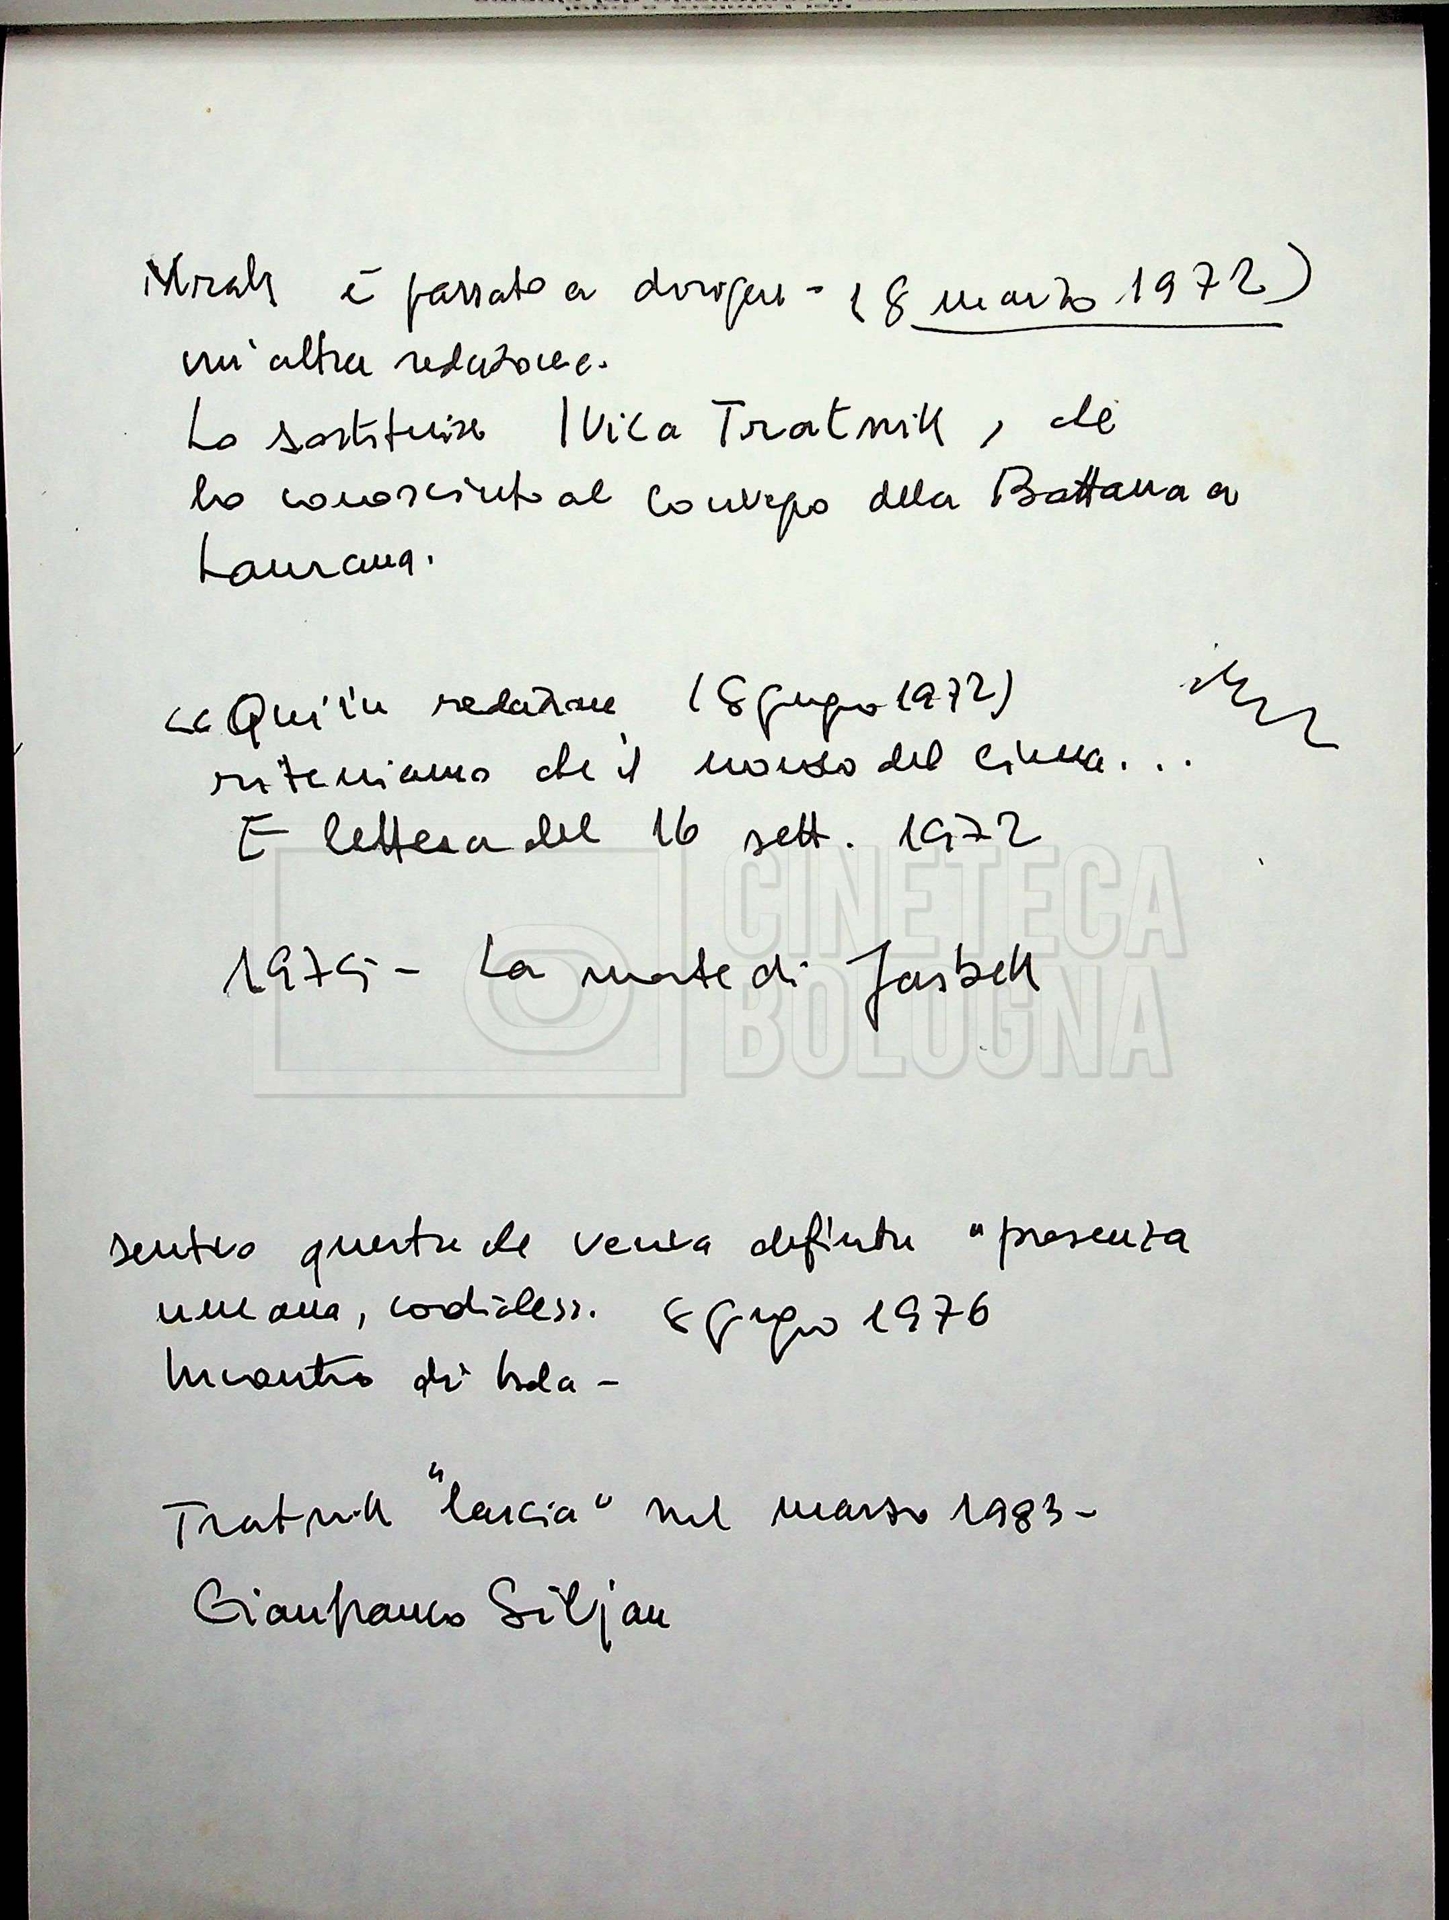 Mrak è passato a dirigere - (8 marzo 1972)
un'altra redazione.
Lo sostituisce Ivica Tratnik, che
ho conosciuto al convegno della Battana a
Laurana.
<<Qui in redazione (8 giugno 1972)
riteniamo che il mondo del cinema...
E lettera del 16 sett. 1972
CINETECA
BOLOGNA
1975 - La morte di
sentivo questa che veniva definita "presenza
umana, cordialess. 8 giugno 1976
Incontro di Isola -
Tratnik "lascia" nel marzo 1983 -
Gianfranco Siljan